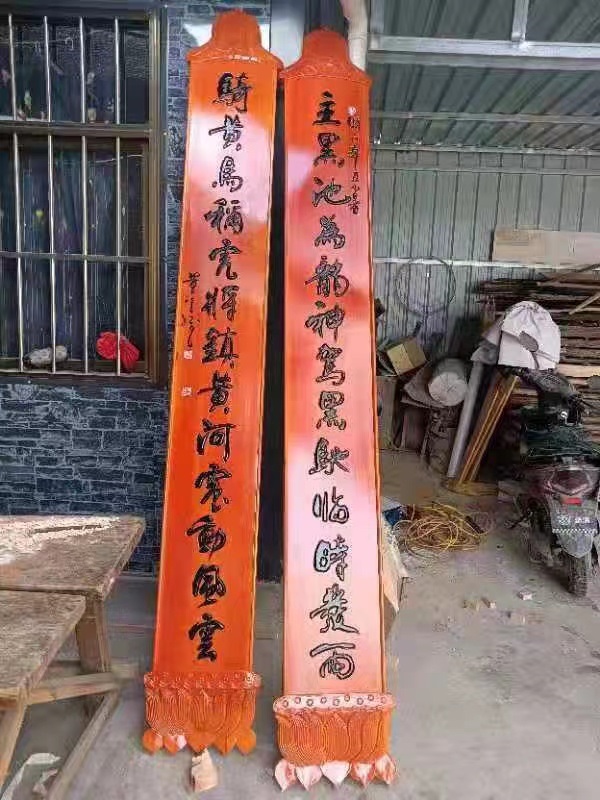 主黑池為龍神駕黑駛临時發雨
騎黄馬稱虎將鎮黄河震動風雲